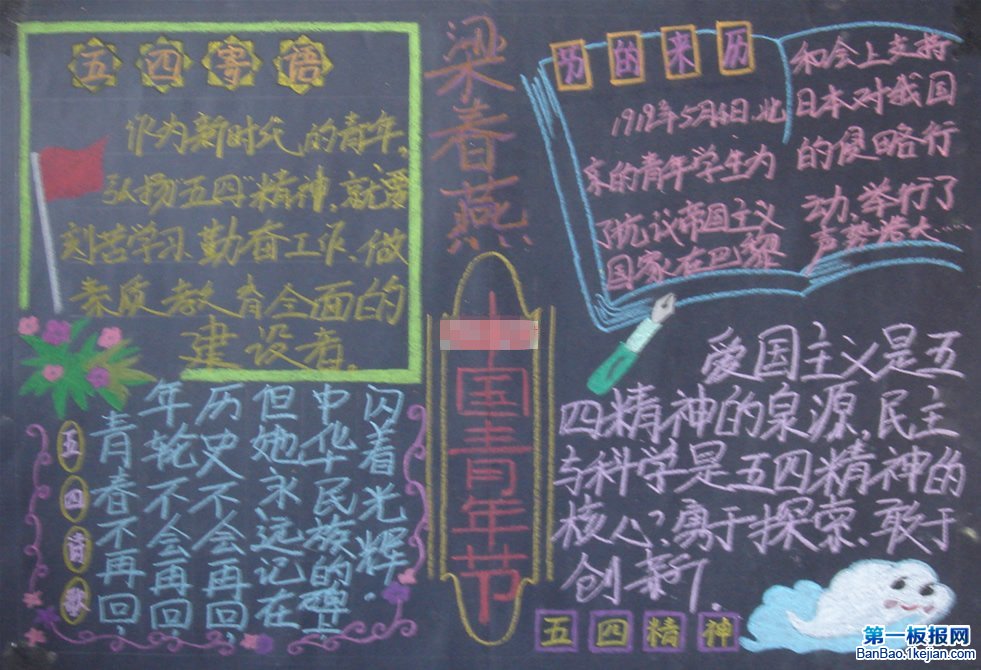 五四寄语
作为新时代的青年,
弘扬"五四"精神,就要
刻苦学习、勤奋工作、做
素质教育全面的
建设者。
五四歌
青春不再回,
年轮不会再回,
历史不会再回,
但她永远记在
中华民族的碑上
闪着光辉.
梁春燕
中国青年节
的来历
1919年5月4日、北
京的青年学生为
了抗议帝国主义
国家在巴黎
和会上支持
日本对我国
的侵略行
动,举行了
声势浩大……
爱国主义是五
四精神的泉源,民主
与科学是五四精神的
核心?勇于探索、敢于
创新,
五四精神
第一板报网
BanBao.1kejian.com